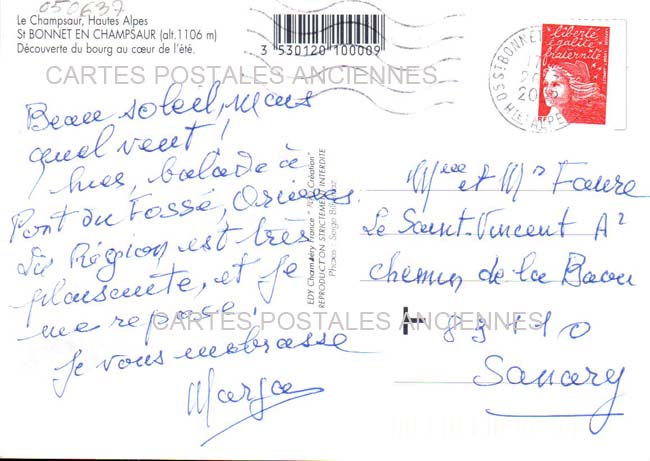 050637
Le Champsaur, Hautes Alpes
St BONNET EN CHAMPSAUR (alt.1106 m)
Découverte du bourg au cœur de l'été.
3 530120 100009
CARTES POSTALES ANCIENNES
Beau soleil, mais
quel vent !
hier, balade à
Pont du Fossé, Orcières.
La Région est très
plaisante, et je
me repose !
je vous embrasse
EDY Chambéry France
Création
REPRODUCTION STRICTEMENT INTERDITE
Photos : Serge
CARTES POSTALES ANCIENNES
05 ST BONNET
20
Htes ALPES
liberté
égalité
fraternité
Mme et Mr Faure
Le Saint-Vincent A2
chemin de la Baou
83110
Sanary